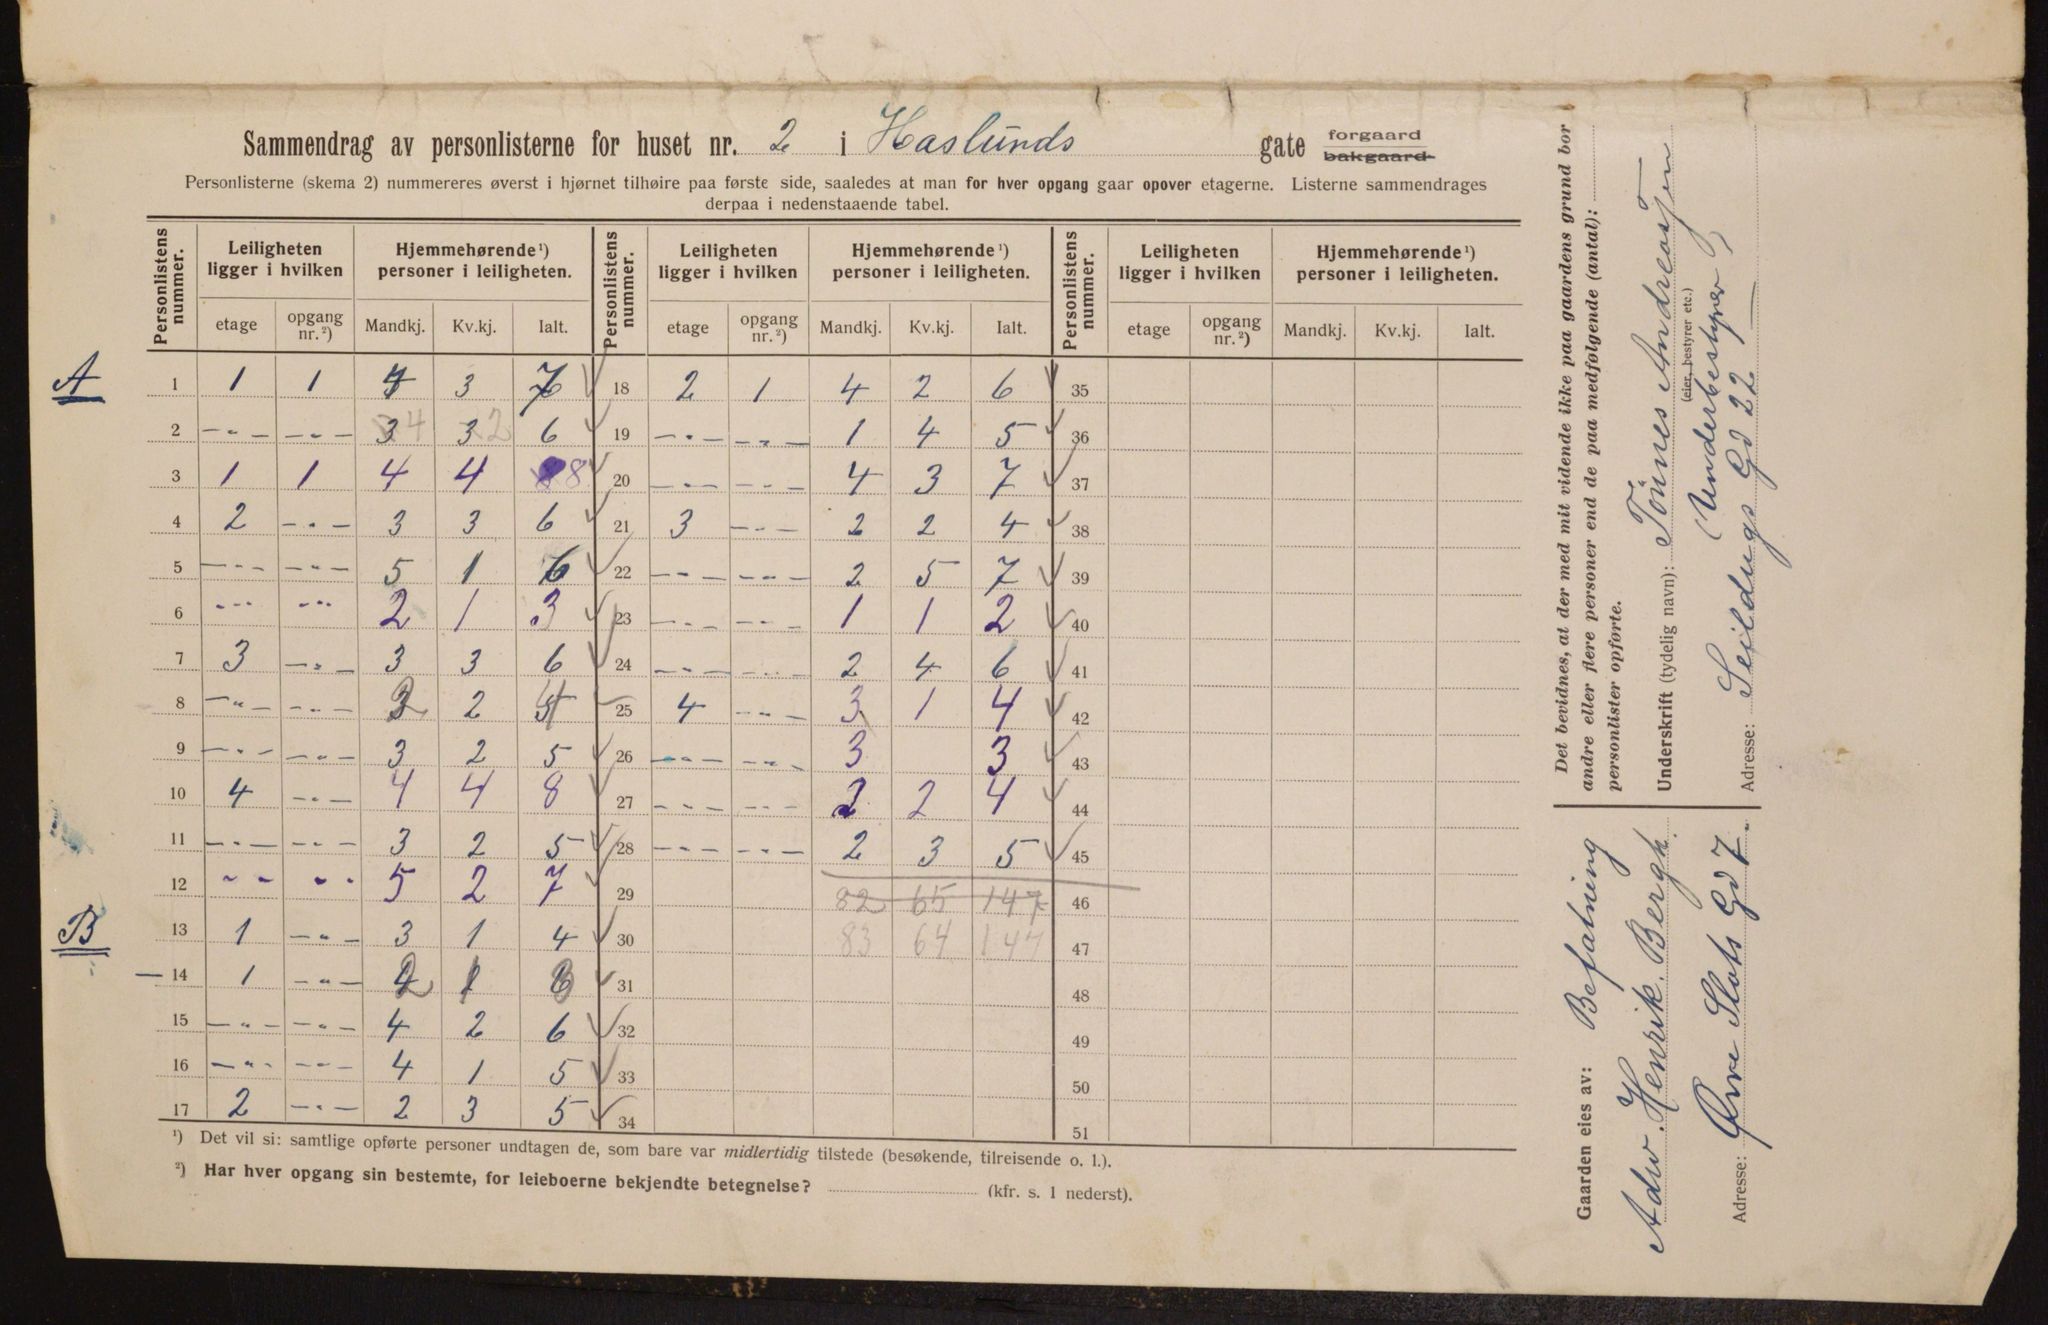 Sammendrag av personlisterne for huset nr. 2 i Haslunds gate forgaard bakgaard
Personlisterne (skema 2) nummereres øverst i hjørnet tilhøire paa første side, saaledes at man for hver opgang gaar opover etagerne. Listerne sammendrages
derpaa i nedenstaaende tabel.
Personlistens nummer. Leiligheten ligger i hvilken Hjemmehørende ¹) personer i leiligheten.
etage opgang nr. ²) Mandkj. Kv.kj. Ialt.
A
1 1 1 4 3 7
2 —"— —"— 3 4 3 2 6
3 1 1 4 4 8 8
4 2 —"— 3 3 6
5 —"— —"— 5 1 6
6 —"— —"— 2 1 3
7 3 —"— 3 3 6
8 —"— —"— 2 2 4
9 —"— —"— 3 2 5
10 4 —"— 4 4 8
11 —"— —"— 3 2 5
12 —"— —"— 5 2 7
B
13 1 —"— 3 1 4
14 1 —"— 2 1 3
15 —"— —"— 4 2 6
16 —"— —"— 4 1 5
17 2 —"— 2 3 5
Personlistens nummer. Leiligheten ligger i hvilken Hjemmehørende ¹) personer i leiligheten.
etage opgang nr. ²) Mandkj. Kv.kj. Ialt.
18 2 1 4 2 6
19 —"— —"— 1 4 5
20 —"— —"— 4 3 7
21 3 —"— 2 2 4
22 —"— —"— 2 5 7
23 —"— —"— 1 1 2
24 —"— —"— 2 4 6
25 4 —"— 3 1 4
26 —"— —"— 3 3
27 —"— —"— 2 2 4
28 —"— —"— 2 3 5
29 82 65 147
30 83 64 147
31
32
33
34
Personlistens nummer. Leiligheten ligger i hvilken Hjemmehørende ¹) personer i leiligheten.
etage opgang nr. ²) Mandkj. Kv.kj. Ialt.
35
36
37
38
39
40
41
42
43
44
45
46
47
48
49
50
51
¹) Det vil si: samtlige opførte personer undtagen de, som bare var midlertidig tilstede (besøkende, tilreisende o. l.).
²) Har hver opgang sin bestemte, for leieboerne bekjendte betegnelse? (kfr. s. 1 nederst).
Det bevidnes, at der med mit vidende ikke paa gaardens grund bor
andre eller flere personer end de paa medfølgende (antal):
personlister opførte.
Underskrift (tydelig navn): Tönnes Andreasen
(eier, bestyrer etc.)
(Underbestyrer)
Adresse: Seildugs Gd 22
Gaarden eies av: Befatning
Adv. Henrik. Bergh.
Adresse: Øvre Slots Gd 7.